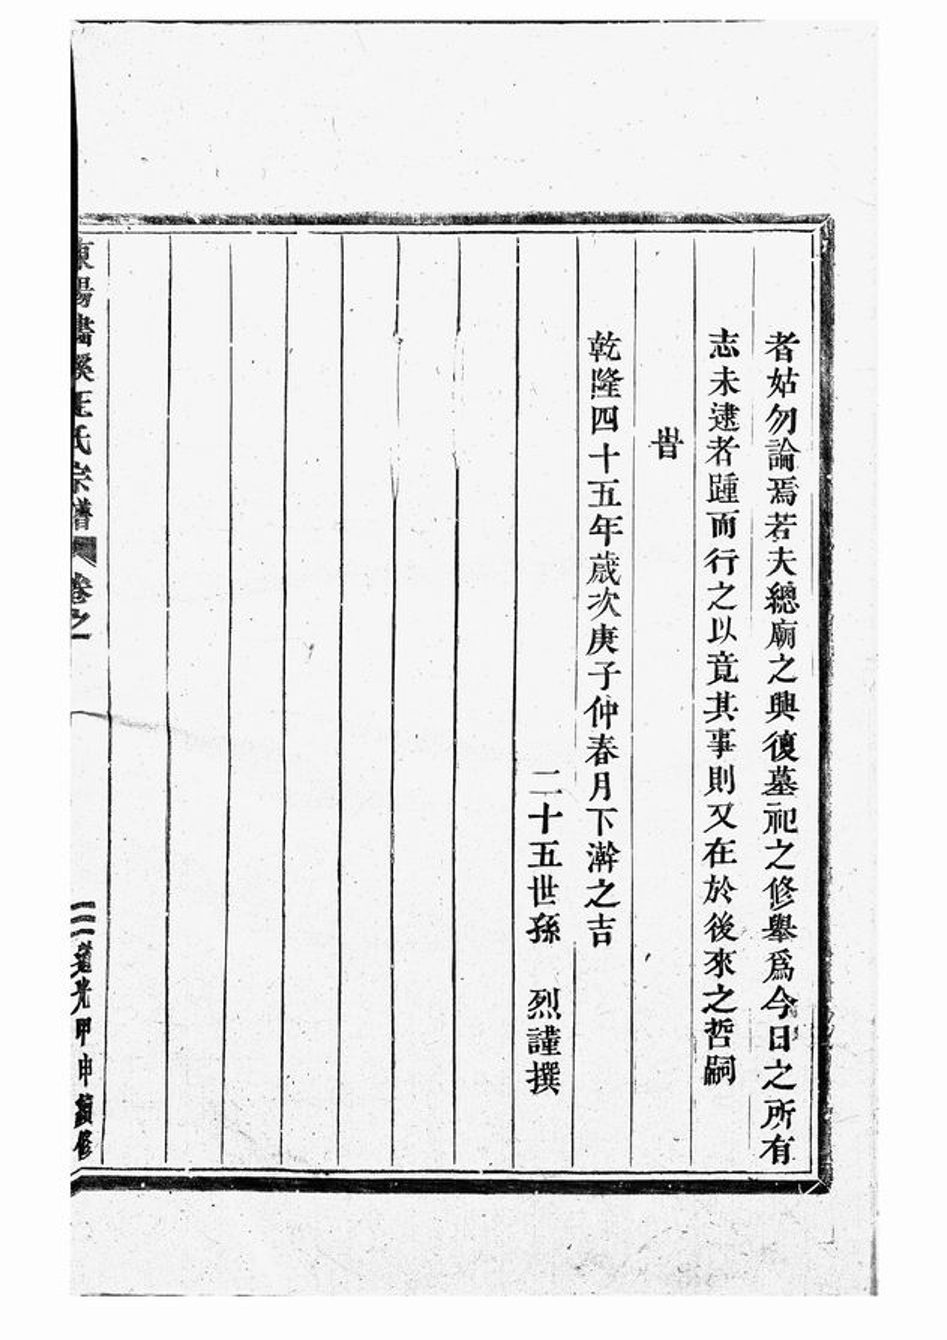 者姑勿論焉若夫總廟之興復墓祀之修舉爲今日之所有
志未逮者踵而行之以竟其事則又在於後來之哲嗣
旹
乾隆四十五年歲次庚子仲春月下澣之吉
二十五世孫　烈謹撰
東陽畫溪王氏宗譜
卷之一
三
道光甲申續修